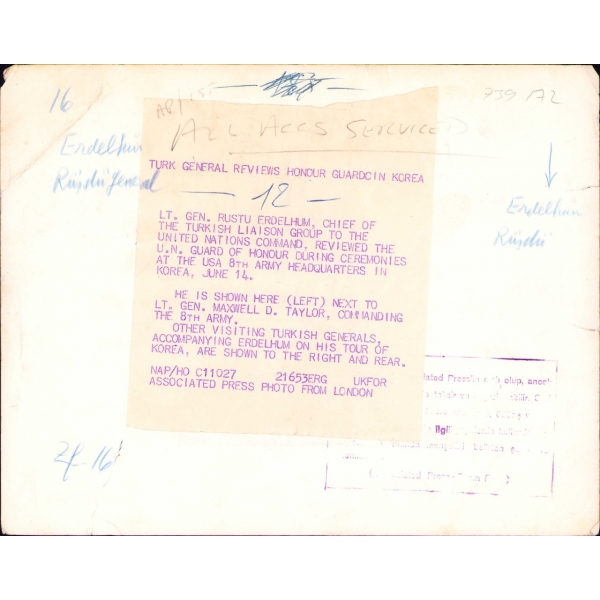 16
AR/455
739 172
ALL ACCS SERVICED
Erdelhün
Rüşdü General
TURK GENERAL REVIEWS HONOUR GUARDCIN KOREA
— 12 —
LT. GEN. RUSTU ERDELHUM, CHIEF OF
THE TURKISH LIAISON GROUP TO THE
UNITED NATIONS COMMAND, REVIEWED THE
U.N. GUARD OF HONOUR DURING CEREMONIES
AT THE USA 8TH ARMY HEADQUARTERS IN
KOREA, JUNE 14.
HE IS SHOWN HERE (LEFT) NEXT TO
LT. GEN. MAXWELL D. TAYLOR, COMMANDING
THE 8TH ARMY.
OTHER VISITING TURKISH GENERALS,
ACCOMPANYING ERDELHUM ON HIS TOUR OF
KOREA, ARE SHOWN TO THE RIGHT AND REAR.
NAP/HO C11027 21653ERG UKFOR
ASSOCIATED PRESS PHOTO FROM LONDON
Erdelhün
Rüşdü
olup,